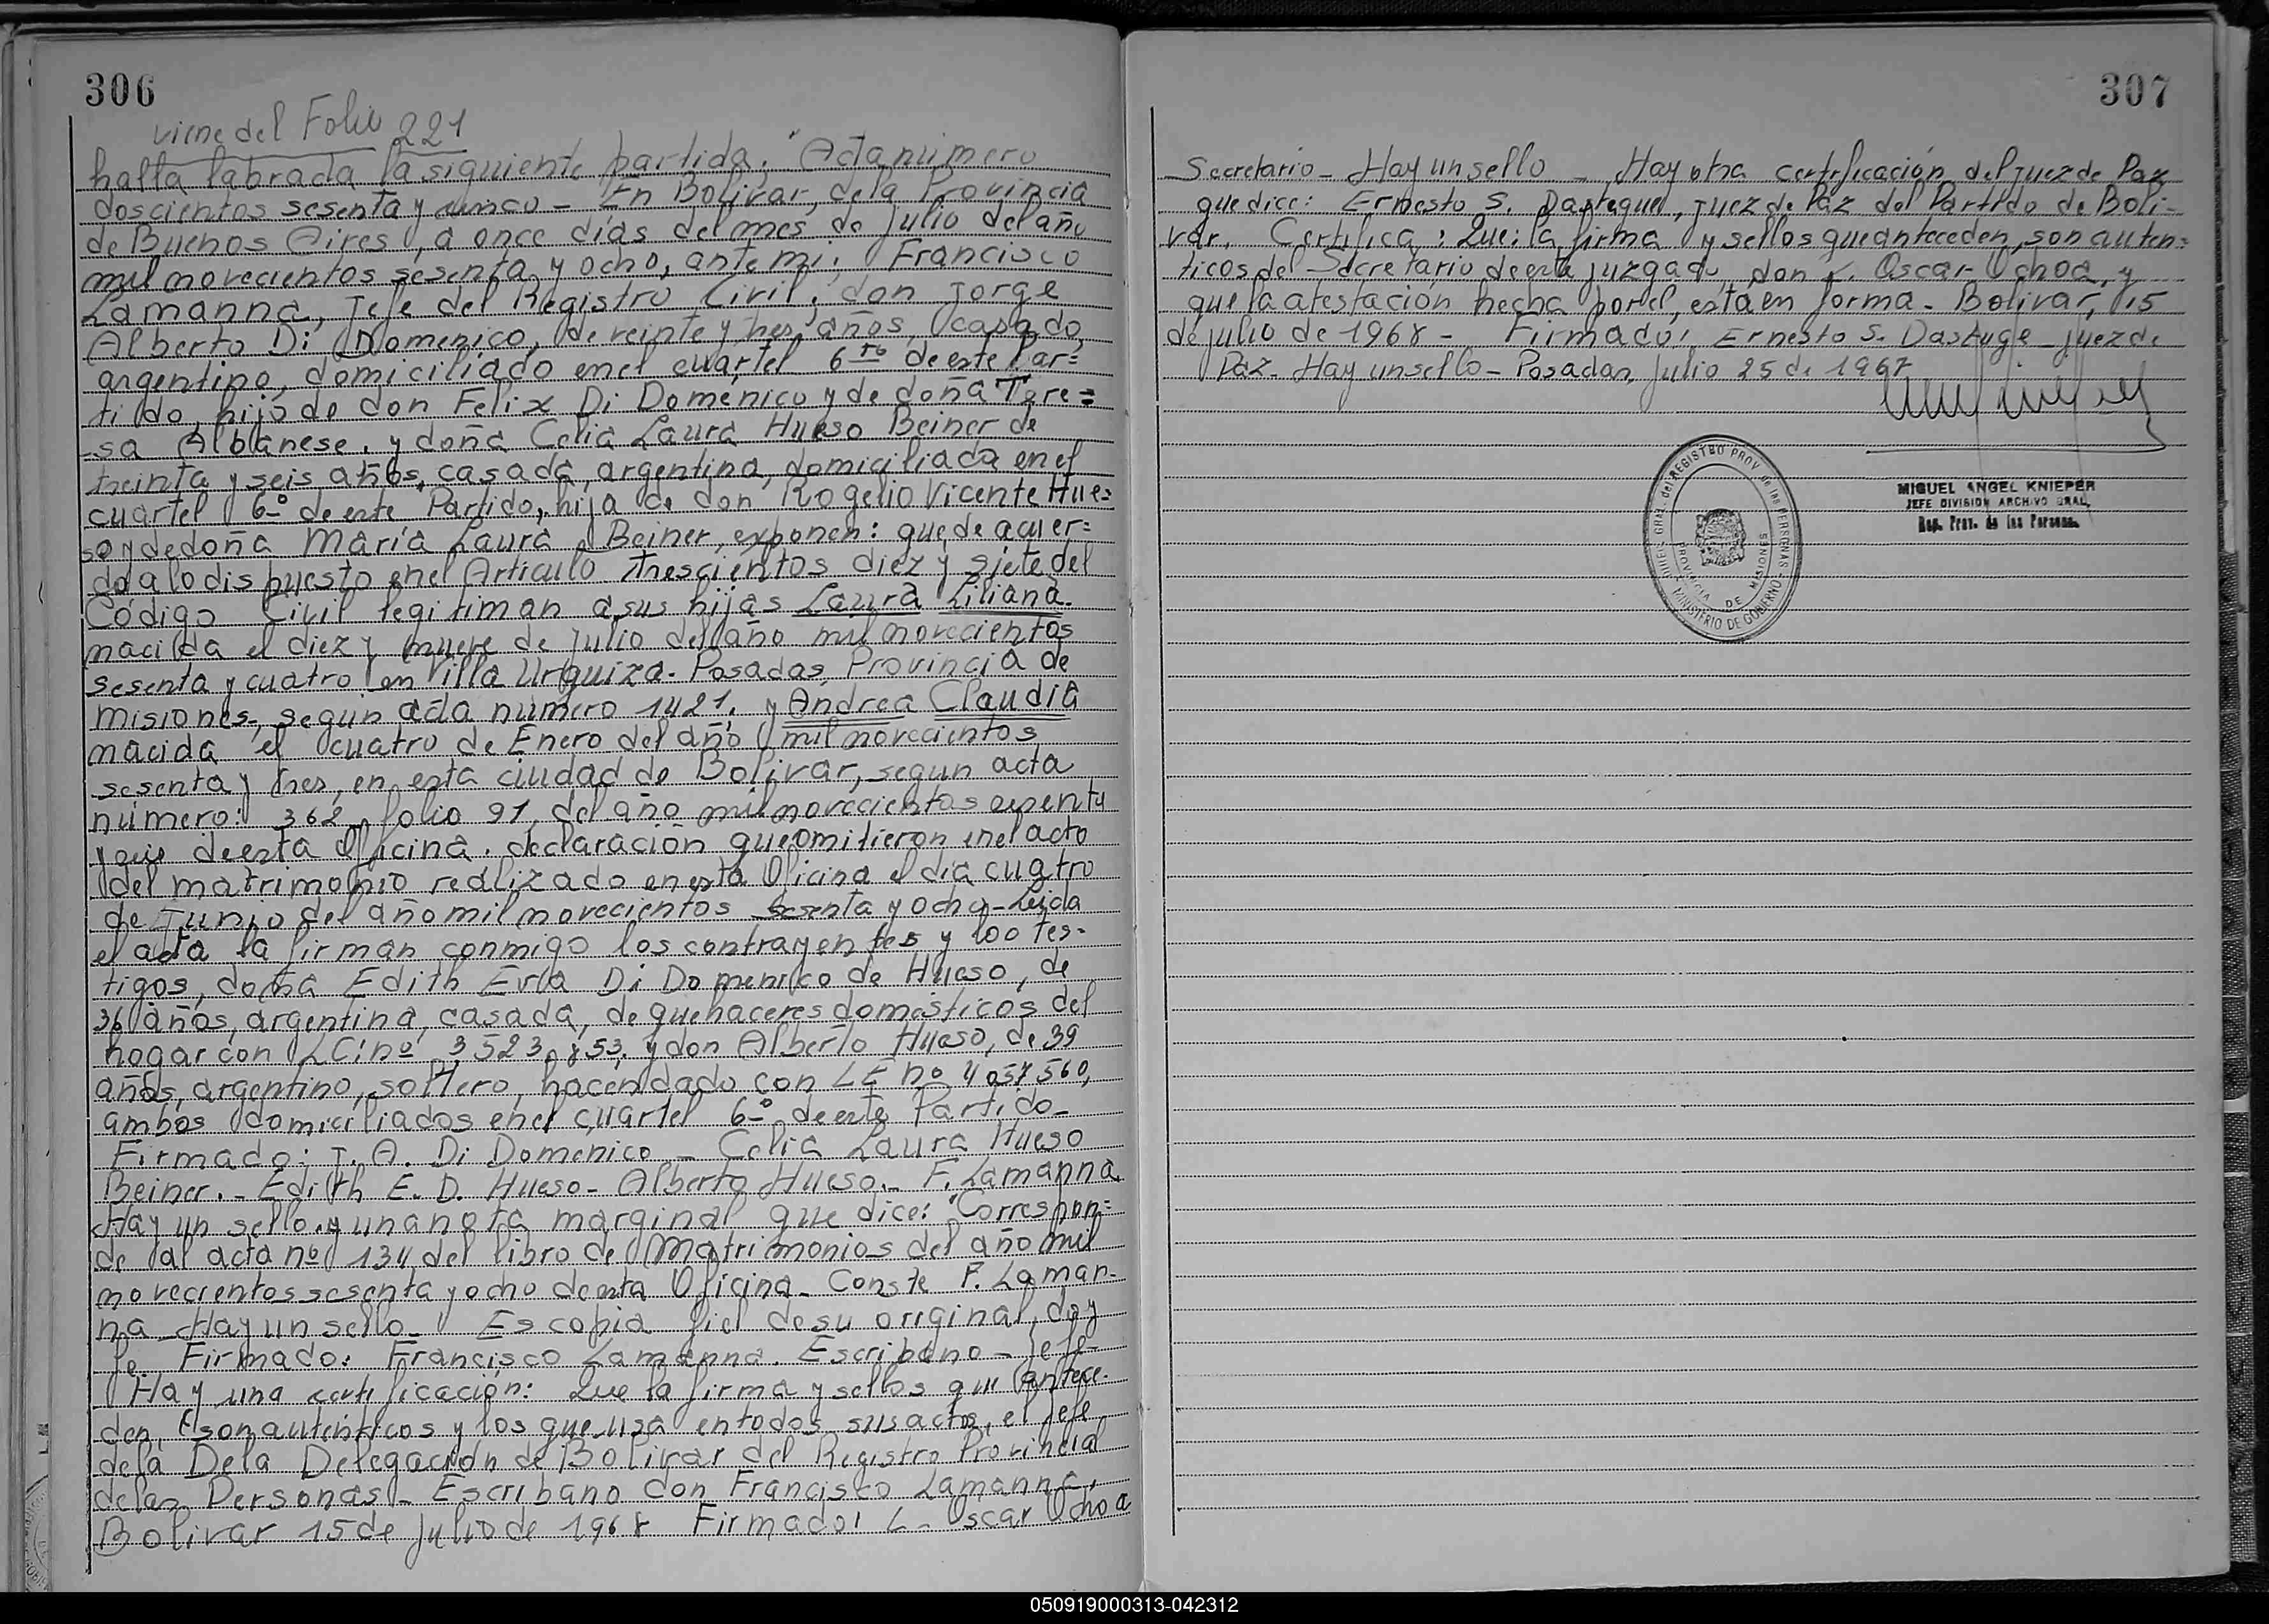 306
viene del Folio 221
halla labrada la siguiente partida: "Acta número
doscientos sesenta y cinco - En Bolivar, dela Provincia
de Buenos Aires, a once dias del mes de Julio del año
mil novecientos sesenta y ocho, ante mi: Francisco
Lamanna, Jefe del Registro Civil, don Jorge
Alberto Di Domenico, de veinte y tres años, casado,
argentino, domiciliado en el cuartel 6to de este Par=
tido, hijo de don Felix Di Domenico y de doña Tere=
-sa Albanese, y doña Celia Laura Hueso Beiner de
treinta y seis años, casada, argentina, domiciliada en el
cuartel 6º de este Partido, hija de don Rogelio Vicente Hue=
so y de doña María Laura Beiner, exponen: que de acuer=
do a lo dispuesto en el Articulo trescientos diez y siete del
Código Civil legitiman a sus hijas Laura Liliana.
nacida el diez y nueve de Julio del año mil novecientos
sesenta y cuatro en Villa Urquiza - Posadas, Provincia de
Misiones, según acta número 1421, y Andrea Claudia
nacida el cuatro de Enero del año mil novecientos
sesenta y tres, en esta ciudad de Bolivar, segun acta
número: 362, folio 91, del año mil novecientos
de esta Oficina. declaración que omitieron en el acto
del matrimonio realizado en esta Oficina el día cuatro
de Junio del año mil novecientos sesenta y ocho - Leida
el acta la firman conmigo los contrayentes y los tes-
tigos, doña Edith Di Domenico de Hueso, de
36 años, argentina, casada, de quehaceres domésticos del
hogar con LC: nº y don Alberto Hueso, de 39
años, argentino, soltero, hacendado con LE nº 4057560,
ambos domiciliados en el cuartel 6º de este Partido -
Firmado: J. A. Di Domenico - Celia Laura Hueso
Beiner. - Edith E. D. Hueso - Alberto Hueso. - F. Lamanna
Hay un sello y una nota marginal que dice: "Correspon=
de al acta nº 134 del libro de Matrimonios del año mil
novecientos sesenta y ocho de esta Oficina - Conste F. Laman-
na - Hay un sello - Es copia fiel de su original, doy
fe Firmado: Francisco Lamanna. Escribano - Jefe -
Hay una certificación: Que la firma y sellos que antece-
den, son auténticos y los que usa en todos sus actos, el Jefe
dela Dela Delegación de Bolivar del Registro Provincial
delas Personas - Escribano don Francisco Lamanna,
Bolivar 15 de Julio de 1968 Firmado: L - Oscar Ochoa
307
Secretario - Hay un sello - Hay otra certificación del Juez de Paz
que dice: Ernesto S. Dastugue, Juez de Paz del Partido de Boli-
var, Certifica: Que: la firma y sellos que anteceden, son autén=
ticos del Secretario de este Juzgado, don L. Oscar Ochoa, y
que la atestación hecha por el, está en forma - Bolivar, 15
de julio de 1968 - Firmado: Ernesto S. Dastuge - Juez de
Paz - Hay un sello - Posadas, Julio 25 de 1967
MIGUEL ANGEL KNIEPER
JEFE DIVISION ARCHIVO GRAL.
Reg. Prov. de las Personas
GRAL. del REGISTRO PROV. de las PERSONAS
MINISTERIO DE GOBIERNO
PROVINCIA DE MISIONES
050919000313-042312